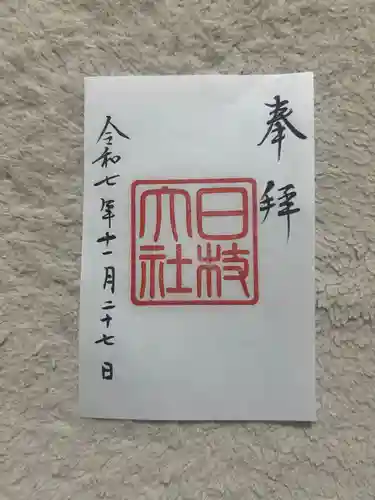 奉拝
日枝
大社
令和七年十一月二十七日